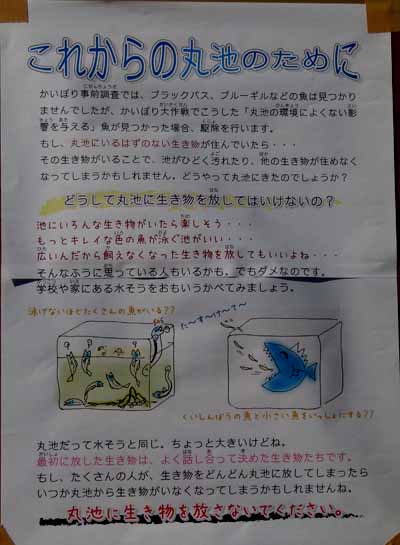 これからの丸池のために
かいぼり事前調査では、ブラックバス、ブルーギルなどの魚は見つかり
ませんでしたが、かいぼり大作戦でこうした「丸池の環境によくない影
響を与える」魚が見つかった場合、駆除を行います。
もし、丸池にいるはずのない生き物が住んでいたら・・・
その生き物がいることで、池がひどく汚れたり、他の生き物が住めなく
なってしまうかもしれません。どうやって丸池にきたのでしょうか？
どうして丸池に生き物を放してはいけないの？
池にいろんな生き物がいたら楽しそう・・・
もっとキレイな色の魚が泳ぐ池がいい・・・
広いんだから飼えなくなった生き物を放してもいいよね・・・
そんなふうに思っている人もいるかも。でもダメなのです。
学校や家にある水そうをおもいうかべてみましょう。
泳げないほどたくさんの魚がいる？？
た〜す〜け〜て〜
くいしんぼうの魚と小さい魚をいっしょにする？？
丸池だって水そうと同じ。ちょっと大きいけどね。
最初に放した生き物は、よく話し合って決めた生き物たちです。
もし、たくさんの人が、生き物をどんどん丸池に放してしまったら
いつか丸池から生き物がいなくなってしまうかもしれませんね。
丸池に生き物を放さないでください。